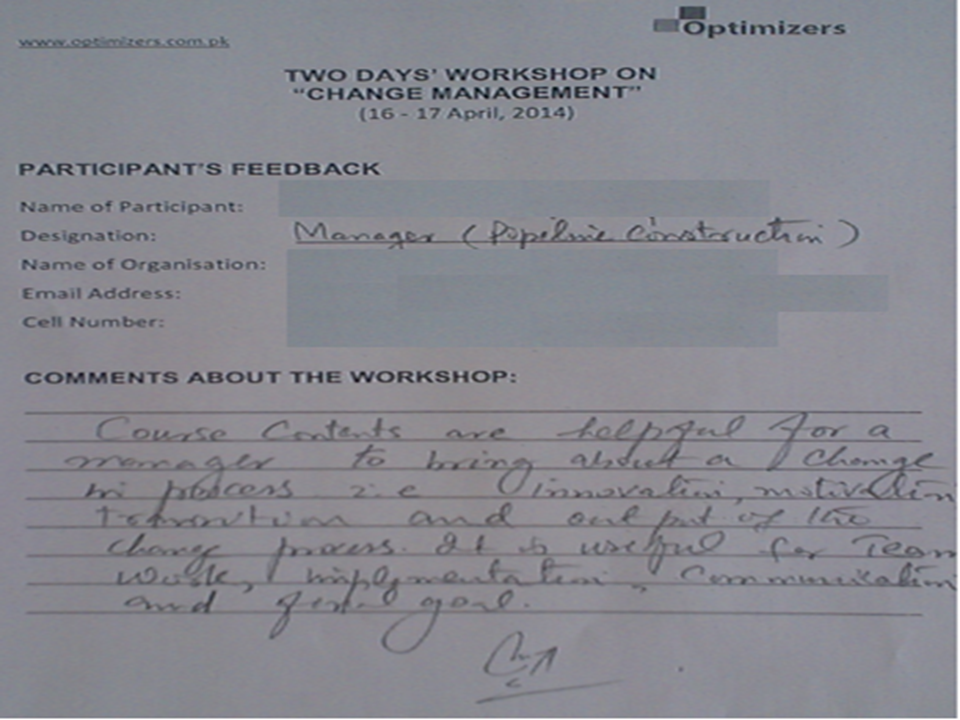 www.optimizers.com.pk
Optimizers
TWO DAYS' WORKSHOP ON
"CHANGE MANAGEMENT"
(16 - 17 April, 2014)
PARTICIPANT'S FEEDBACK
Name of Participant:
Designation: Manager (Pipeline Construction)
Name of Organisation:
Email Address:
Cell Number:
COMMENTS ABOUT THE WORKSHOP:
Course Contents are helpful for a
manager to bring about a change
in process i.e innovation, motivation
transition and out put of the
change process. It is useful for Team
Work, implementation, Communication
and final goal.